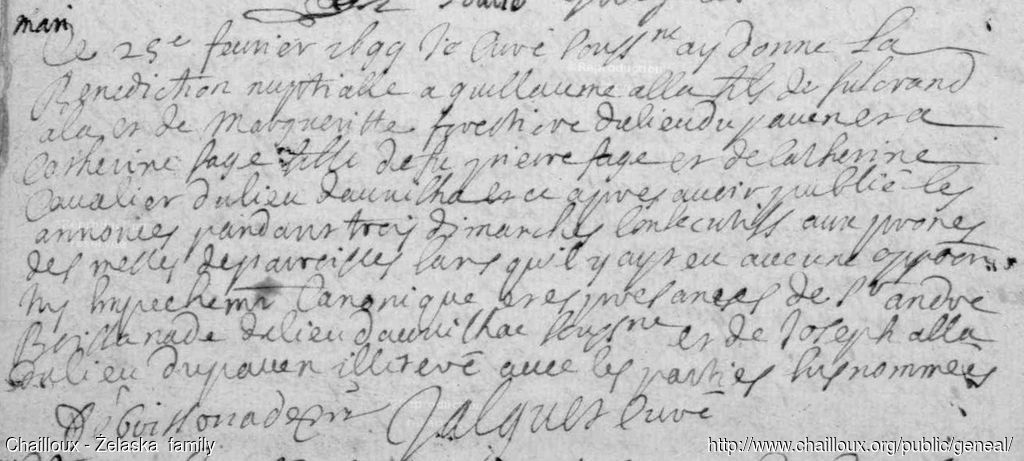 marj
Le 25e fevrier 1699 Je Curé souss.né ay donné La
Benediction nuptialle a guillaume alla fils de fulcrand
ala et de Margueritte forestiere du lieu du pauen et a
Catherine sage fille de fu pierre sage et de Catherine
Cavalier du lieu daumilhac et ce apres avoir publié les
annonces pandant trois dimarches Consecutifs aux prones
des messes de paroisses sans quil y ayt eu aucune oppo
ny Empechemt Canonique et es presances de Sr andre
Boissonade du lieu daumilhac souss.né et de Joseph alla
du lieu du pauen illiteré avec les parties susnommées
Boissonade Jalques Curé
Chailloux - Želaska family
http://www.chailloux.org/public/geneal/